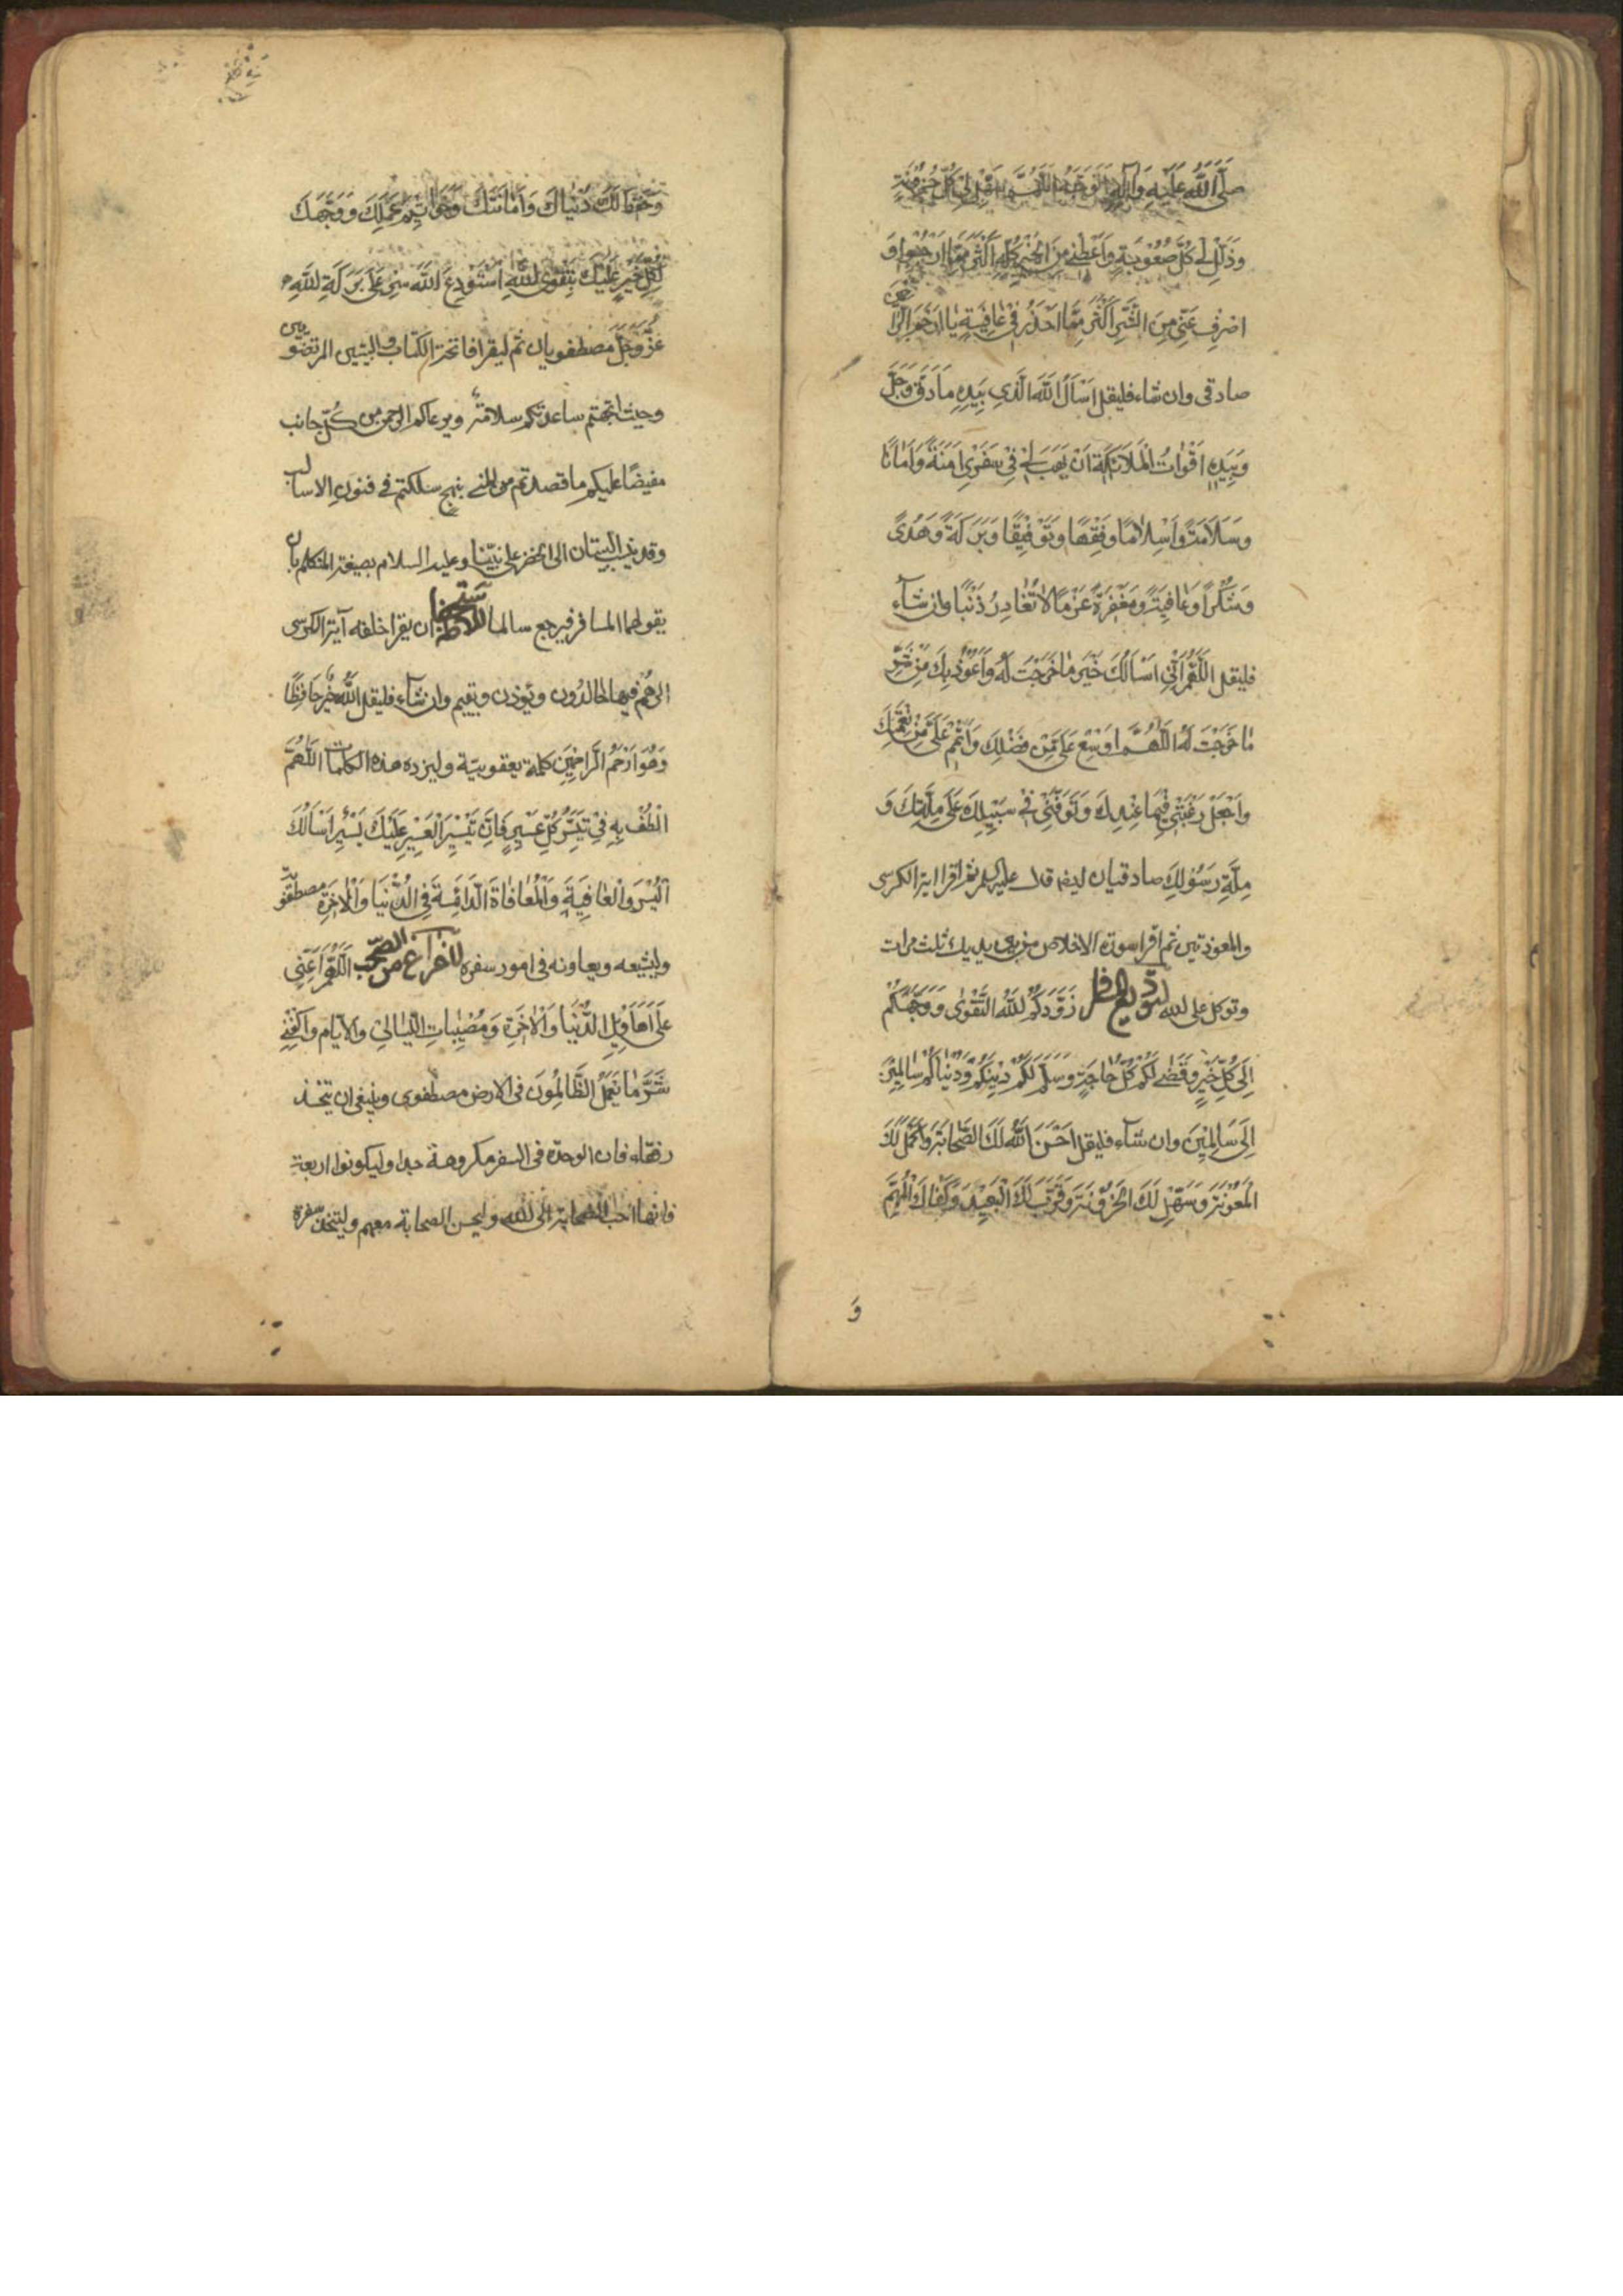 صَلَّى اللَّهُ عَلَيْهِ وَآلِهِ اللَّهُمَّ سَهِّلْ لِي كُلَّ حُزُونَةٍ
وَذَلِّلْ لِي كُلَّ صُعُوبَةٍ وَأَعْطِنِي مِنَ الْخَيْرِ كُلِّهِ أَكْثَرَ مِمَّا أَرْجُو وَ
اصْرِفْ عَنِّي مِنَ الشَّرِّ أَكْثَرَ مِمَّا أَحْذَرُ فِي عَافِيَةٍ يَا أَرْحَمَ الرَّاحِمِينَ
صادقى وان شاء فليقل اَسْاَلُ اللَّهَ الَّذِي بِيَدِهِ مَا دَقَّ وَجَلَّ
وَبِيَدِهِ اَقْوَاتُ الْمَلَائِكَةِ اَنْ يَهَبَ لِي فِي سَفَرِي اَمْنَةً وَاَمَانًا
وَسَلَامَةً وَاِسْلَامًا وَفِقْهًا وَتَوْفِيقًا وَبَرَكَةً وَهُدًى
وَشُكْرًا وَعَافِيَةً وَمَغْفِرَةً عَزْمًا لَا تُغَادِرُ ذَنْبًا وان شآء
فليقل اَللَّهُمَّ اِنِّي اَسْاَلُكَ خَيْرَ مَا خَرَجْتُ لَهُ وَاَعُوذُ بِكَ مِنْ شَرِّ
مَا خَرَجْتُ لَهُ اَللَّهُمَّ اَوْسِعْ عَلَيَّ مِنْ فَضْلِكَ وَاَتْمِمْ عَلَيَّ مِنْ نِعْمَتِكَ
وَاجْعَلْ رَغْبَتِي فِيمَا عِنْدَكَ وَتَوَفَّنِي فِي سَبِيلِكَ عَلَى مِلَّتِكَ وَ
مِلَّةِ رَسُولِكَ صادقيان ثم اقرا اية الكرسى
والمعوذتين ثم اقرا سورة الاخلاص من بين يديك ثلث مرات
وتوكل على لله لتوديع زَوَّدَكُمُ اللَّهُ التَّقْوَى وَوَجَّهَكُمْ
اِلَى كُلِّ خَيْرٍ وَقَضَى لَكُمْ كُلَّ حَاجَةٍ وَسَلَّمَ لَكُمْ دِينَكُمْ وَدُنْيَاكُمْ سَالِمِينَ
اِلَى سَالِمِينَ وان شآء فليقل اَحْسَنَ اللَّهُ لَكَ الصَّحَابَةَ وَاَكْمَلَ لَكَ
الْمَعُونَةَ وَسَهَّلَ لَكَ الْحُزُونَةَ وَقَرَّبَ لَكَ الْبَعِيدَ وَكَفَاكَ الْمُهِمَّ
وَ
وَحَفِظَ لَكَ دُنْيَاكَ وَاَمَانَتَكَ وَخَوَاتِيمَ عَمَلِكَ وَوَجَّهَكَ
لِكُلِّ خَيْرٍ عَلَيْكَ بِتَقْوَى اللَّهِ اَسْتَوْدِعُ اللَّهَ سِرْ عَلَى بَرَكَةِ اللَّهِ
عَزَّ وَجَلَّ مصطفويان ثم ليقرا فاتحة الكتاب والبيتين المرتضويين
وحيث اتجهتم ساعدتكم سلامة ويرعاكم الرحمن من كل جانب
مفيضًا عليكم ما قصدتم من المنى بنهج سلكتم فى فنون الاسالب
وقد نسب البيتان الى الخضر على نبيّنا وعليه السلام بصيغة المتكلم بان
يقولهما المسافر فيرجع سالما ان يقرا خلفه آية الكرسى
الى هم فيها خالدون ويؤذن ويقيم وان شآء فليقل اَللَّهُ خَيْرٌ حَافِظًا
وَهُوَ اَرْحَمُ الرَّاحِمِينَ كلمة يعقوبيّة وليزده هذه الكلمات اَللَّهُمَّ
الْطُفْ بِهِ فِي تَيَسُّرِ كُلِّ عَسِيرٍ فَاِنَّ تَيْسِيرَ الْعَسِيرِ عَلَيْكَ يَسِيرٌ اَسْاَلُكَ
اَلْيُسْرَ وَالْعَافِيَةَ وَالْمُعَافَاةَ الدَّائِمَةَ فِي الدُّنْيَا وَالْاخِرَةِ مصطفويّة
وليشيعه ويعاونه فى امور سفره اَللَّهُمَّ اَعِنِّي
عَلَى اَهَاوِيلِ الدُّنْيَا وَالْاخِرَةِ وَمُصِيبَاتِ اللَّيَالِي وَالْاَيَّامِ وَاكْفِنِي
شَرَّ مَا يَعْمَلُ الظَّالِمُونَ فى الارض مصطفوى وينبغى ان يتخذ
رفقاء فان الوحدة فى السفر مكروهة جدا وليكونوا اربعة
فانها احب الصحابة الى الله وليحسن الصحابة معهم وليتخذ سفرة